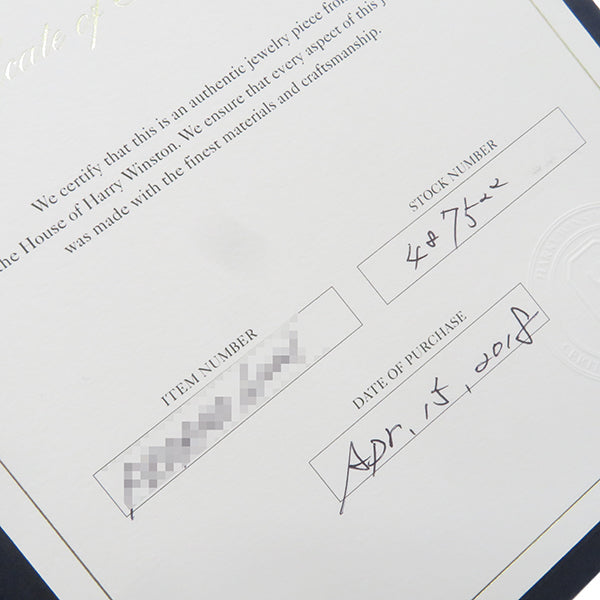 cate of
We certify that this is an authentic jewelry piece from
the House of Harry Winston. We ensure that every aspect of this
was made with the finest materials and craftsmanship.
STOCK NUMBER
487522
ITEM NUMBER
DATE OF PURCHASE
Apr. 15, 2018